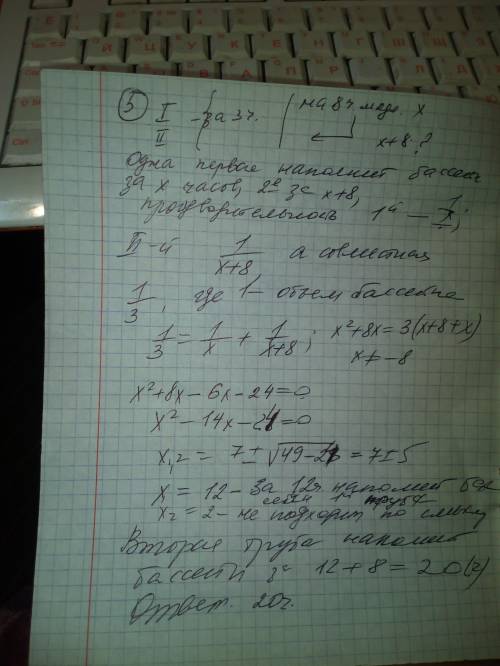 5 I II - за 3 ч. на 8 ч. x
x+8 ?
Одна первая наполнит бассейн
за x часов, 2я за x+8,
производительность 1й – 1/x;
II-й 1/(x+8) а совместная
1/3, где 1 – объем бассейна
1/3 = 1/x + 1/(x+8); x²+8x = 3(x+8+x)
x ≠ -8
x²+8x-6x-24=0
x²-14x-24=0
x₁,₂ = 7 ± √49-24 = 7±5
x = 12 - за 12ч наполнит
1я труба
x₂ = 2 - не подходит по смыслу
Вторая труба наполнит
бассейн за 12+8 = 20(ч)
Ответ. 20ч.